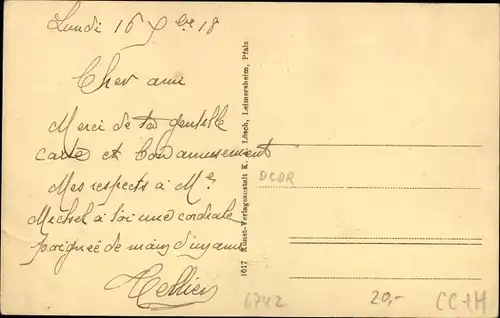 Lundi 16 9bre 18
Cher ami
Merci de ta gentille
carte et bon amusement
Mes respects à Me
Michel à toi une cordiale
poignée de main d'un ami
Tellier
1617 Kunst-Verlagsanstalt K. Lösch, Leimersheim, Pfalz
DCDR
6742
20,-
CC+H